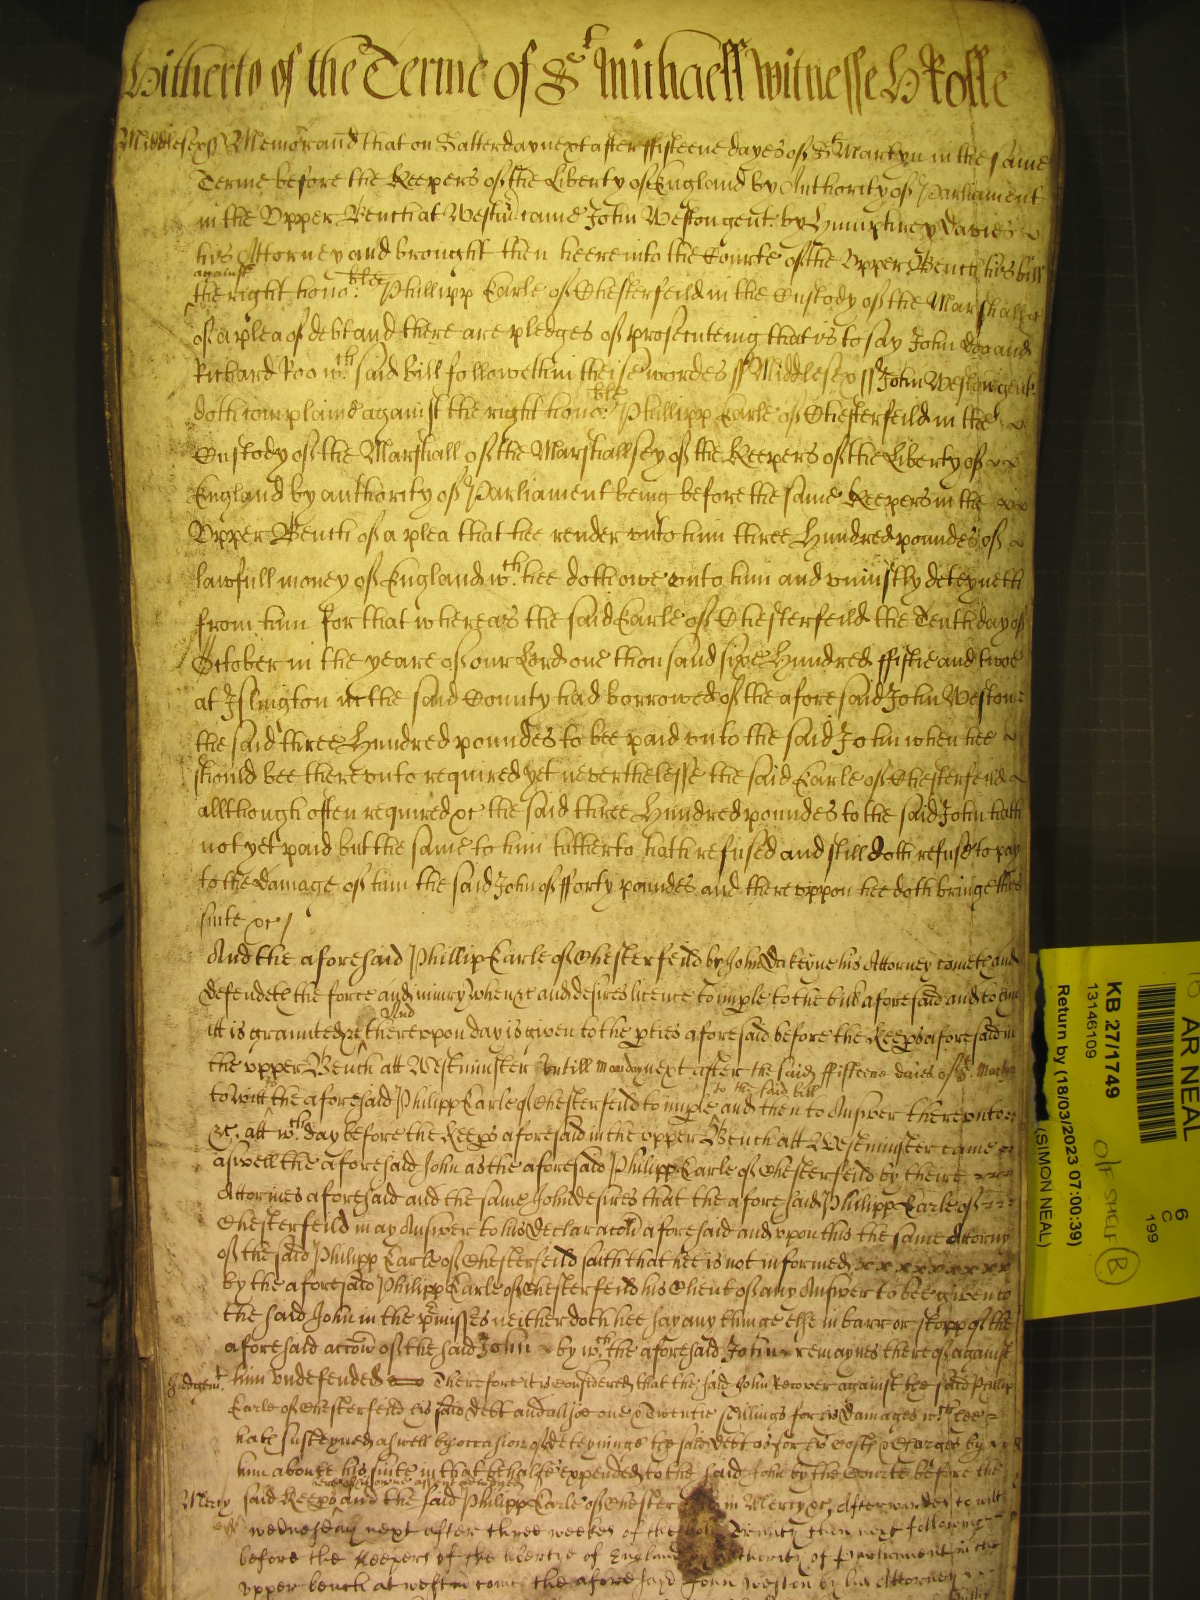 Hitherto of the Terme of St Michaell Witnesse H Rolle
Middlesex ss Memorand that on Satterday next after ffifteene dayes of St Martyn in the same
Terme before the Keepers of the Liberty of England by Authority of Parliament
in the Vpper Bench at Westm came John Weston gent by Humphrey Davies
his Attorney and brought then heere into the Courte of the Vpper Bench his bill
against
the right honoble Phillipp Earle of Chesterfeild in the Custody of the Marshall &c
of a plea of debt and there are pledges of prosecuteing that is to say John Doo and
Richard Roo wch said bill followeth in theise wordes ss Middlesex ss John Weston gent
doth complaine against the right honoble Phillipp Earle of Chesterfeild in the
Custody of the Marshall of the Marshallsey of the Keepers of the Liberty of
England by authority of Parliament being before the same Keepers in the
Vpper Bench of a plea that hee render vnto him three Hundred poundes of
lawfull money of England wch hee doth owe vnto him and vniustly deteyneth
from him for that whereas the said Earle of Chesterfeild the Tenth day of
October in the yeare of our Lord one thousand sixe Hundred ffiftie and twoe
at Islington in the said County had borrowed of the aforesaid John Weston
the said three Hundred poundes to bee paid vnto the said John when hee
should bee therevnto required yet neverthelesse the said Earle of Chesterfeild
allthough often required &c the said three Hundred poundes to the said John hath
not yet paid but the same to him hitherto hath refused and still doth refuse to pay
to the damage of him the said John of fforty poundes and therevppon hee doth bringe this
suite &c /
And the aforesaid Phillip Earle of Chesterfeild by John Dakeyne his Attorney cometh and
defendeth the force and iniury when &c and desires licence to imple to the bill aforesaid and to him
itt is graunted &c And therevpon day is given to the pties aforesaid before the Keeps aforesaid in
the vpper Bench att Westminster vntill Monday next after the said ffifteene daies of St Martyn
to witt the aforesaid Philipp Earle of Chesterfeild to imple to the said bill and then to Answer therevnto
&c att wch day before the Keeps aforesaid in the vpper Bench att Westminster came
aswell the aforesaid John as the aforesaid Philipp Earle of Chesterfeild by theire
Attornies aforesaid and the same John desires that the aforesaid Philipp Earle of
Chesterfeild may Answer to his declaracon aforesaid and vpon this the same Attorny
of the said Philipp Earle of Chesterfeild saith that hee is not informed
by the aforesaid Philipp Earle of Chesterfeild his Client of any Answer to bee given to
the said John in the pmisses neither doth hee say any thinge else in barr or stopp of the
aforesaid accon of the said John by wch the aforesaid John remaynes thereof against
Judgemt him vndefended Therefore it is Considered that the said John Recover against the said Philip
Earle of Chesterfeild his said debt and alsoe one & Twentie shillings for his damages wch hee
hath susteyned aswell by occasion of deteyninge the said debt as for his Costs & Charges by
him aboute his suite in that behalfe expended to the said John by the Courte before the
Mercy said Keeps and the said Philipp Earle of Chester in Mercy &c Afterwardes to witt
wednesday next after three weekes of the holy Trinity then next following
before the Keepers of the libertye of England authority of Parliament in the
vpper bench at westm come the aforesaid John Weston by his Attorney
AR NEAL
6
C
199
KB 27/1749
13146109
O/S SHELF B
Return by (18/03/2023 07:00:39)
(SIMON NEAL)